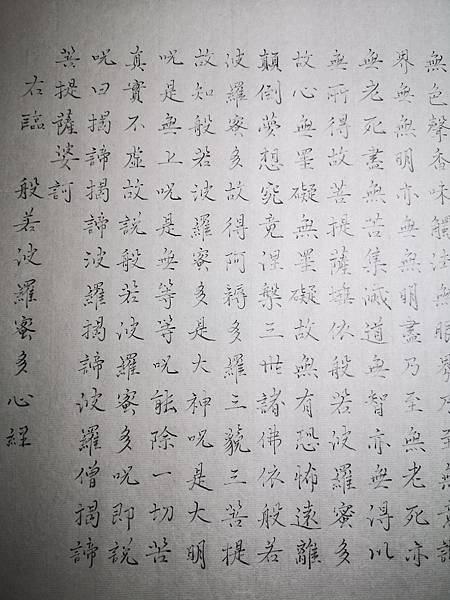 無色聲香味觸法無眼界乃至無意識
界無無明亦無無明盡乃至無老死亦
無老死盡無苦集滅道無智亦無得以
無所得故菩提薩埵依般若波羅蜜多
故心無罣礙無罣礙故無有恐怖遠離
顛倒夢想究竟涅槃三世諸佛依般若
波羅蜜多故得阿耨多羅三藐三菩提
故知般若波羅蜜多是大神呪是大明
呪是無上呪是無等等呪能除一切苦
真實不虛故說般若波羅蜜多呪即說
呪曰揭諦揭諦波羅揭諦波羅僧揭諦
菩提薩婆訶
右臨 般若波羅蜜多心經